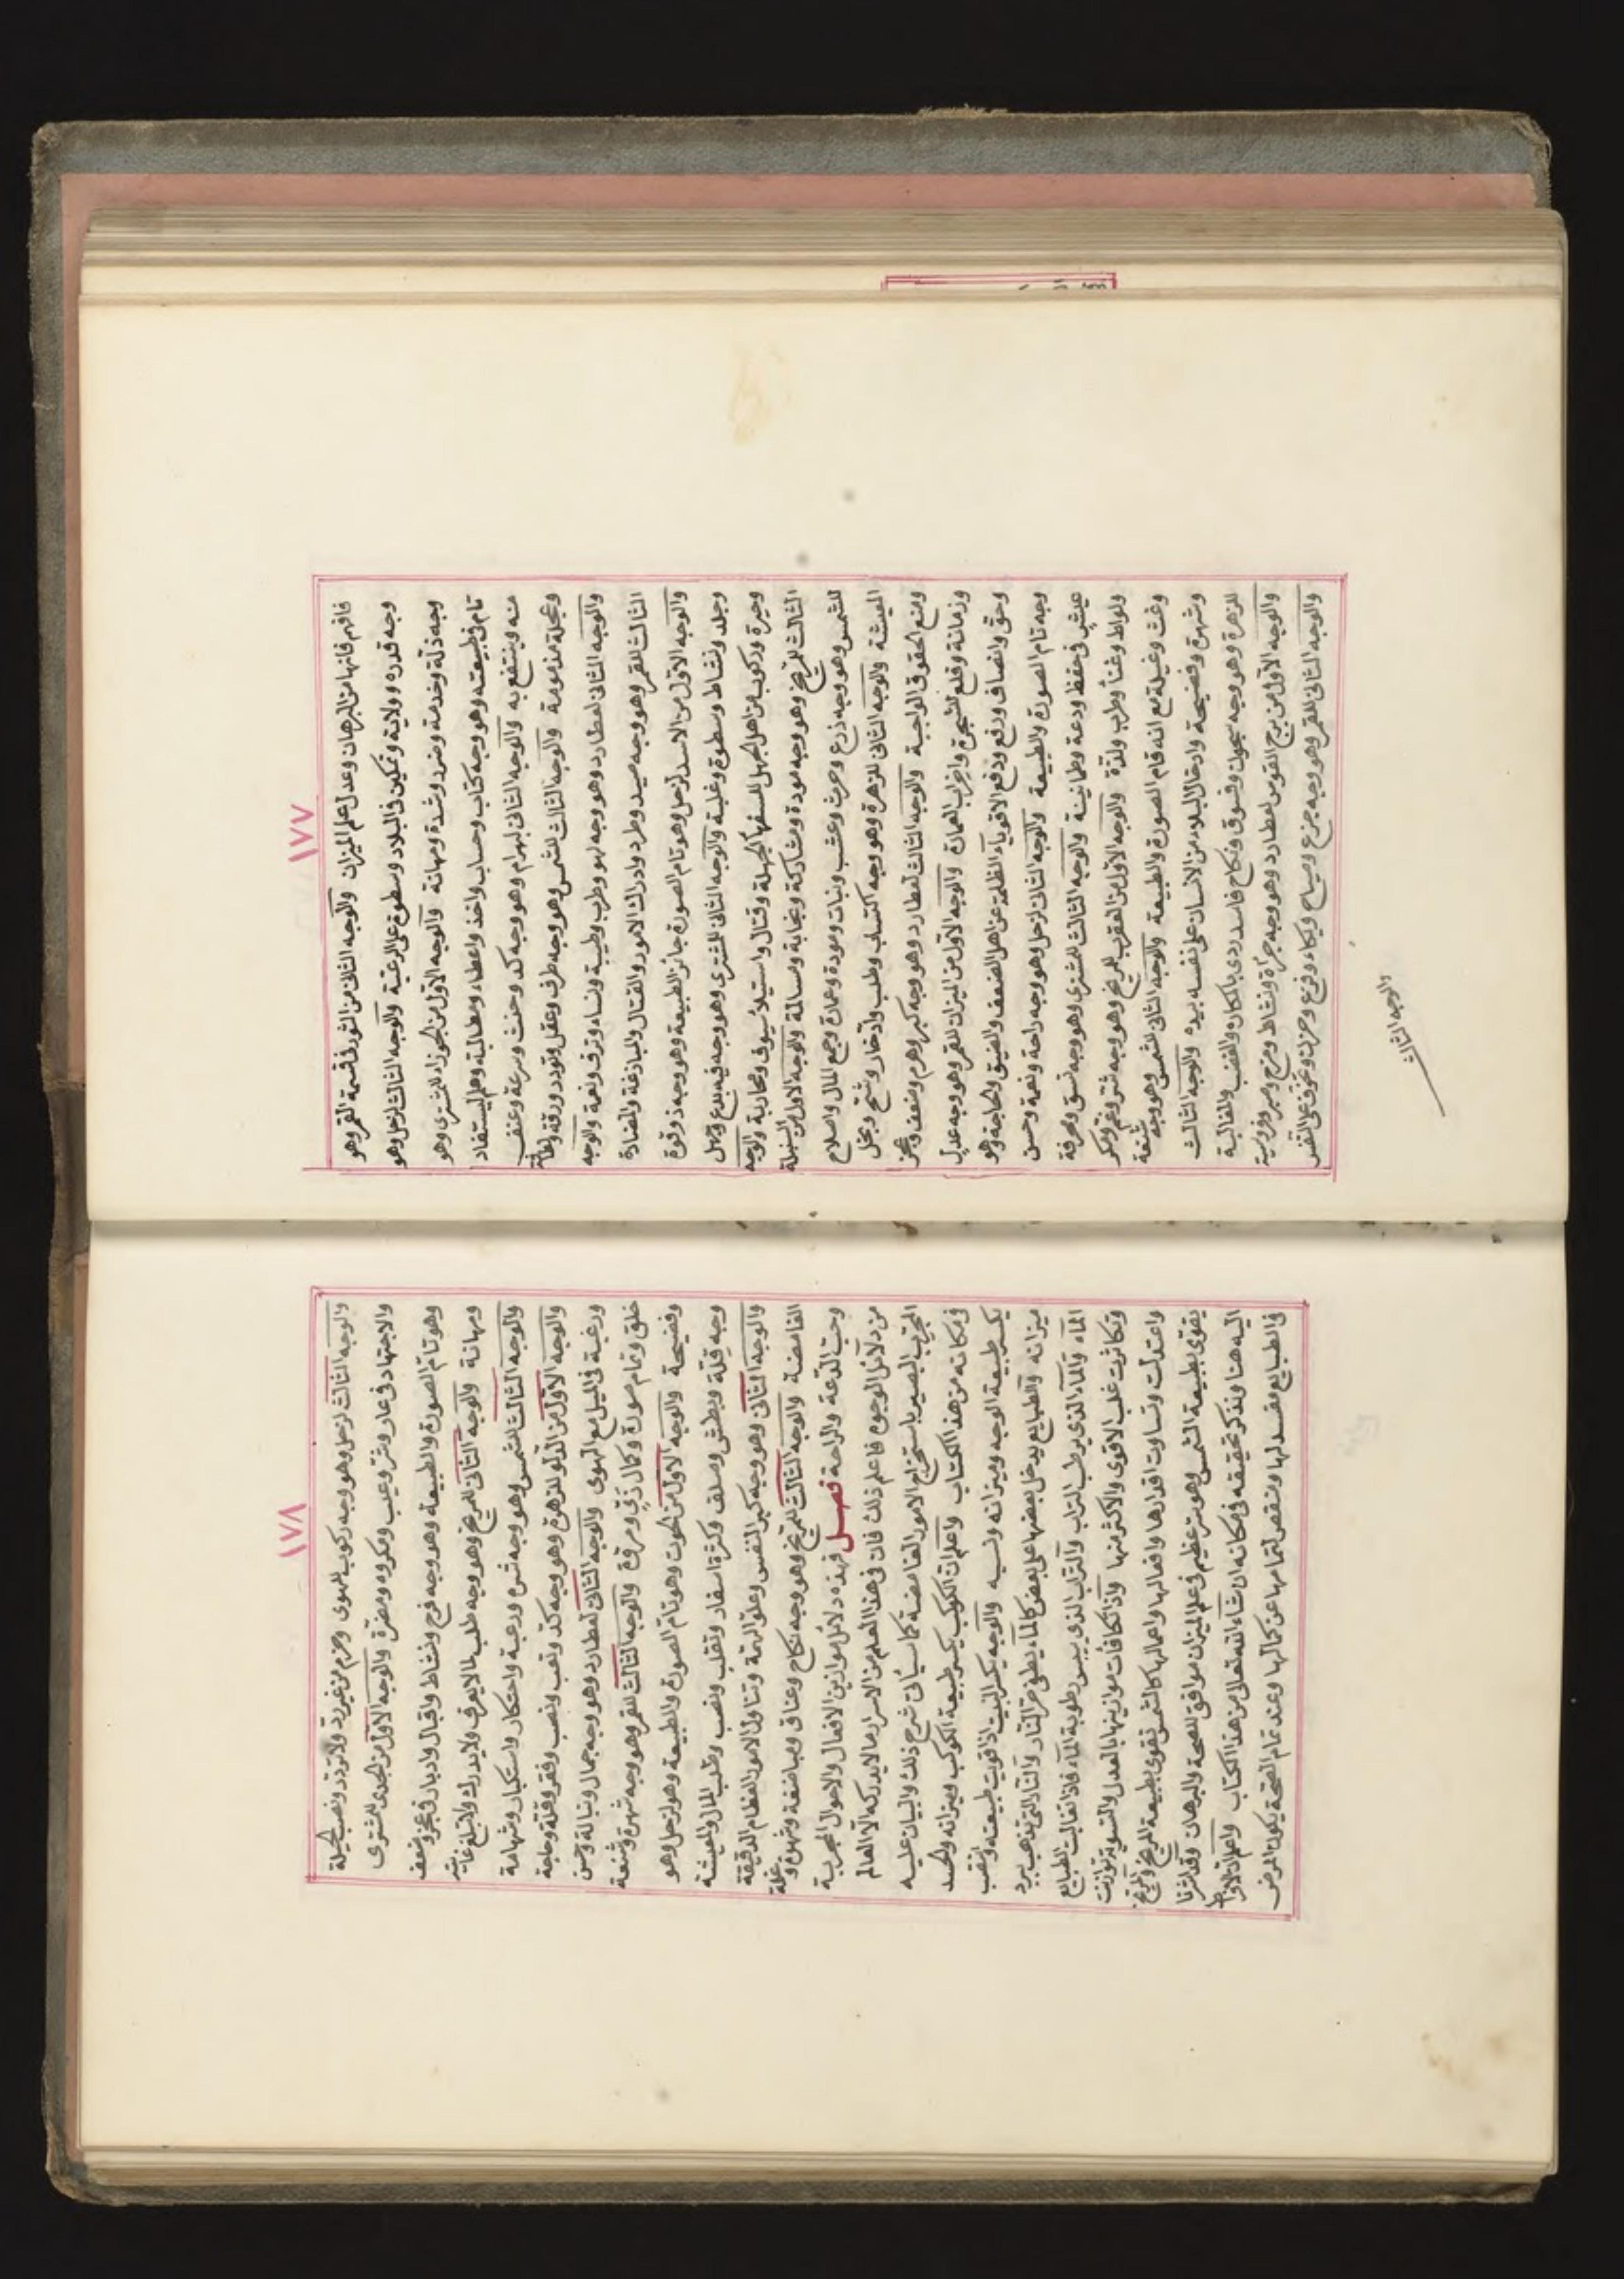 ١٧٧
فافهم فانها من البرهان وعدل علم الميزان والوجه الثانى من الثور فى قسمة القمر وهو
وجه قدره وولاية وتمكين فى البلاد وسطوة على الرعية والوجه الثالث لزحل وهو
وجه ذلة وخدمة وضرر وشدة ومهانة والوجه الاول من الجوزاء للمشترى وهو
تام فى طبيعته وهو وجه كتاب وحساب واخذ واعطاء ومطالبة وعلم يستفاد
منه وينتفع به والوجه الثانى لبهرام وهو وجه كد وحنث وسرعة وعنف
وعجلة مذمومة والوجه الثالث للشمس وهو وجه ظرف وعقل وتودد ورقة
والوجه الثانى لعطارد وهو وجه لهو وطرب وطيبة ونساء وترف ونعمة والوجه
الثالث للقمر وهو وجه صيد وطرد وادراك الامور والقتال والمبادرة والمضادة
والوجه الاول من الاسد لزحل وهو تام الصورة جائز الطبيعة وهو وجه ذو قوة
وجلد ونشاط وسطوة وغلبة والوجه الثانى للمشترى وهو وجه فيه بدع وجهل
وحيرة وركوب من اهل الجهل للسفهاء الجهلة وقتال واستيلا سيوف ومحاربة والوجه
الثالث للمريخ وهو وجه مودة ومشاركة ونجابة ومسالمة والوجه الاول من السنبلة
للشمس وهو وجه زرع وحرث وعشب ونبات ومودة وعمارة وجمع المال واصلاح
المعيشة والوجه الثانى للزهرة وهو وجه اكتساب وطلب وادخار وشح وبخل
ومنع الحقوق الواجبة والوجه الثالث لعطارد وهو وجه كبر وهرم وضعف وعجز
وزمانة وقلع الشجرة واخراب العمارة والوجه الاول من الميزان للقمر وهو وجه عدل
وحق وانصاف ورفع ودفع الاقوياء الظلمة عن اهل الضعف والضيق والحاجة وهو
وجه تام الصورة والطبيعة والوجه الثانى لزحل وهو وجه راحة ونعمة وحسن
عيش فى حفظ ودعة وطمانينة والوجه الثالث للمشترى وهو وجه فسق ومعرفة
ولواط وغنا وطرب ولذة والوجه الاول من العقرب للمريخ وهو وجه شر وغم ومكر
وغث وغيلة مع انه قام الصورة والطبيعة والوجه الثانى للشمس وهو وجه شنعة
وشهرة وفضيحة وادخال البلاء من الانسان على نفسه بيده والوجه الثالث
للزهرة وهو وجه مجون وفسوق ونكاح فاسد ردى بالمكاره والغضب والمغالبة
والوجه الاول من برج القوس لعطارد وهو وجه جرأة ونشاط ومزح وصبر وفروسية
والوجه الثانى للقمر وهو وجه جزع وصياح وبكاء وفزع وحزن وتخوف على النفس
والوجه الثالث
١٧٨
والوجه الثالث لزحل وهو وجه ركوب الهوى وحزم من غير رد ولا تردد ونصب الحيلة
والاجتهاد فى عار وشر وعيب ومكروه ومضرة والوجه الاول من الجدى للمشترى
وهو تام الصورة والطبيعة وهو وجه فرح ونشاط واقبال وادبار فى عجز وضعف
ومهانة والوجه الثانى للمريخ وهو وجه طلب لما لا يعرف ولا يدرك ولا تبلغ غايته
والوجه الثالث للشمس وهو وجه شره ورعبة واحتكار واستكبار وشهامة
والوجه الاول من الدلو للزهرة وهو وجه كد وتعب ونصب وفقر وقلة وحاجة
ورغبة فى الميل مع الهوى والوجه الثانى لعطارد وهو وجه جمال ونبالة وحسن
خلق وتمام صورة وكمال زى ومروة والوجه الثالث للقمر وهو وجه شهرة وشنعة
وفضيحة والوجه الاول من الحوت وهو تام الصورة والطبيعة وهو لزحل وهو
وجه قلة وبطش وصلف وكثرة اسفار وتقلب ونصب وطلب المال والمعيشة
والوجه الثانى وهو وجه كبر النفس وعلو الهمة وتناول الامور العظام الدقيقة
الغامضة والوجه الثالث للمريخ وهو وجه نكاح وعناق ومباضعة وشهوة وغلمة
وحب الدعة والراحة فصل فهذه دلائل موازين الافعال والاحوال المجربة
من دلائل الوجوه فاعلم ذلك فان فى هذا العلم من الاسرار ما لا يدركه الا العالم
المجرب البصير باستخراج الامور الغامضة كما سيأتى شرح ذلك والبيان عليه
فى مكانه من هذا الكتاب واعلم ان الكوكب يكسر طبيعة الكوكب وميزانه والحد
يكسر طبيعة الوجه وميزانه ونسبه والوجه يكسر البيت اذا قويت طبيعته وانتقب
ميزانه والطبايع يدخل بعضها على بعض كالماء يطفى حر النار والنار التى تذهب ببرد
الماء والماء الذى يرطب التراب والتراب الذى ييبس رطوبة الماء فاذا تغالبت الطبايع
وتكاثرت غلب الاقوى والاكثر منها واذا تكافأت موازينها بالعدل والتسوية توازنت
واعتدلت وتساوت اقدارها وافعالها واعمالها كالشمس تقوى بطبيعة المريخ والمريخ
يقوى بطبيعة الشمس وهو سر عظيم فى علم الميزان موافق للصحة والبرهان وقد اشرنا
اليه هنا ونذكر تحقيقه فى مكانه ان شاء الله تعالى من هذا الكتاب واعلم ان الافراط
فى الطبايع مفسد لها ونقص لتمامها عن كمالها وعند تمام الصحة يكون المرض